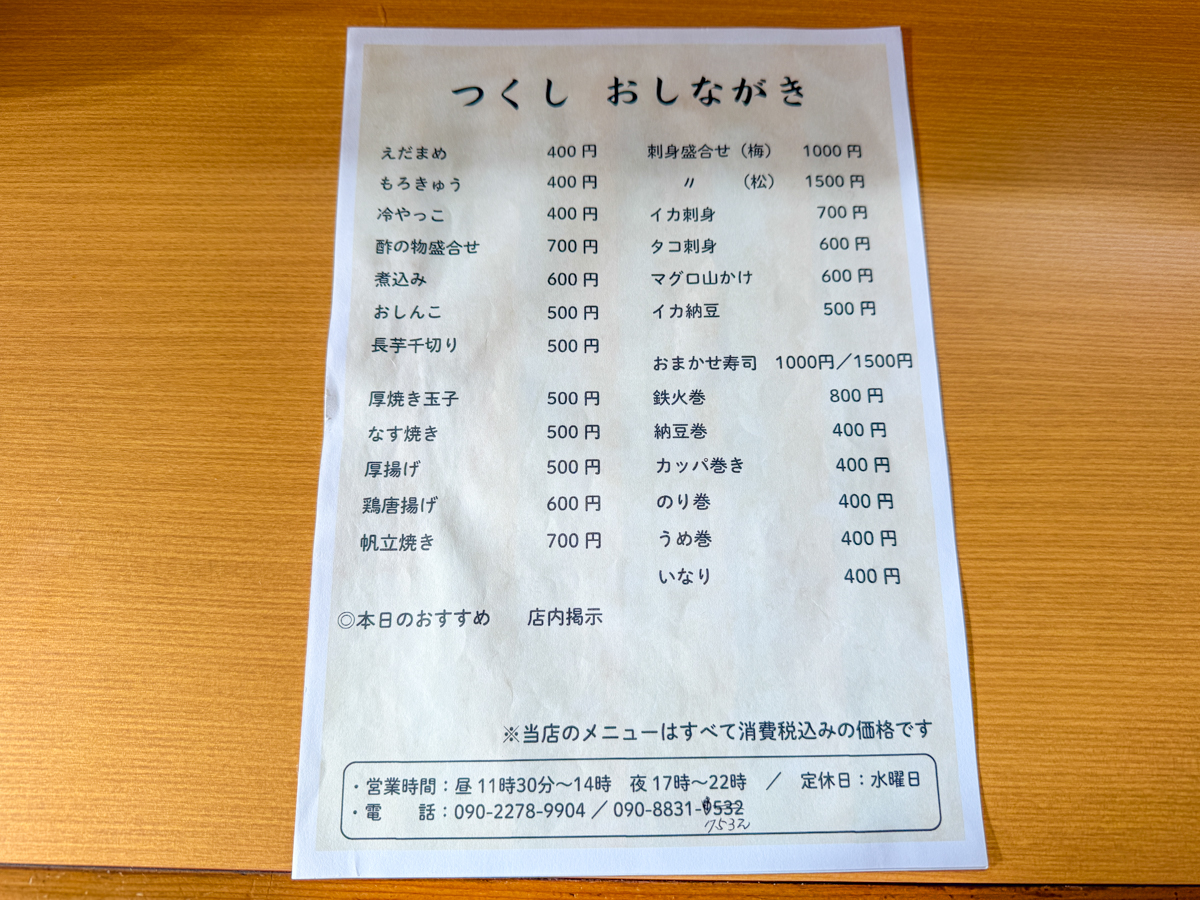 つくし おしながき
えだまめ 400 円
もろきゅう 400 円
冷やっこ 400 円
酢の物盛合せ 700 円
煮込み 600 円
おしんこ 500 円
長芋千切り 500 円
厚焼き玉子 500 円
なす焼き 500 円
厚揚げ 500 円
鶏唐揚げ 600 円
帆立焼き 700 円
刺身盛合せ（梅） 1000 円
〃 （松） 1500 円
イカ刺身 700 円
タコ刺身 600 円
マグロ山かけ 600 円
イカ納豆 500 円
おまかせ寿司 1000円／1500円
鉄火巻 800 円
納豆巻 400 円
カッパ巻き 400 円
のり巻 400 円
うめ巻 400 円
いなり 400 円
◎本日のおすすめ 店内掲示
※当店のメニューはすべて消費税込みの価格です
・営業時間：昼 11時30分～14時 夜 17時～22時 ／ 定休日：水曜日
・電 話：090-2278-9904 ／ 090-8831-0532
7532